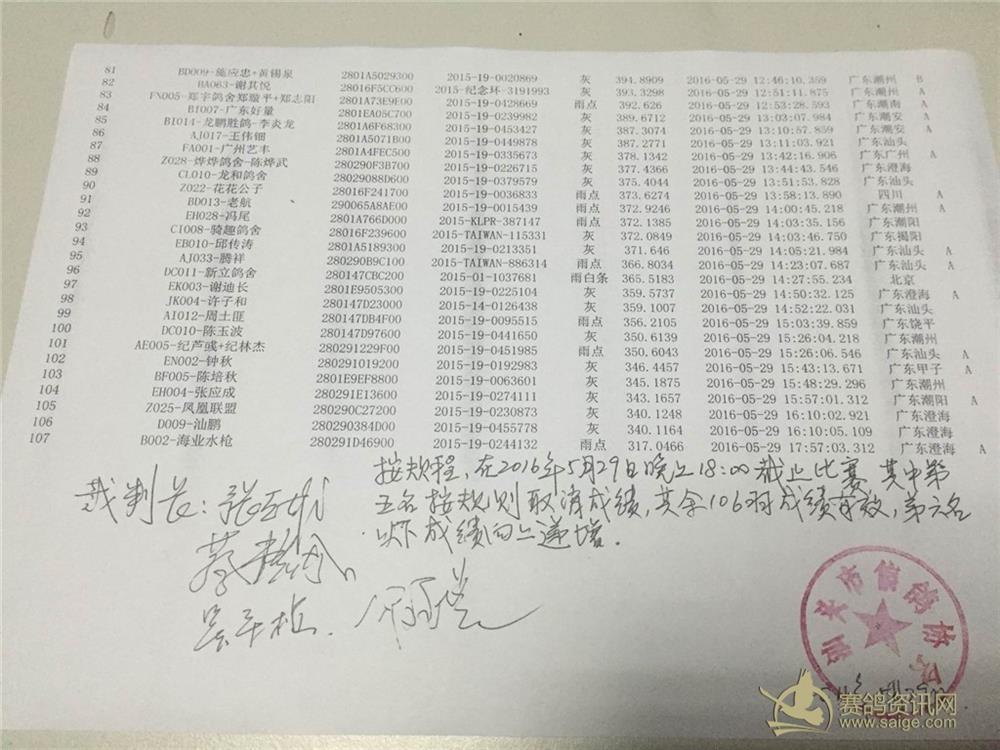 81 BD009-施应忠+黄锡泉 2801A5029300 2015-19-0020869 灰 394.8909 2016-05-29 12:46:10.359 广东潮州 B
82 BA063-谢其悦 28016F5CC600 2015-纪念环-3191993 灰 393.3298 2016-05-29 12:51:11.875 广东潮州 A
83 FN005-郑宇鸽舍郑璇平+郑志阳 2801A73E9F00 2015-19-0428669 雨点 392.626 2016-05-29 12:53:28.593 广东潮南 A
84 BI007-广东好量 2801EA05C700 2015-19-0239982 灰 389.6712 2016-05-29 13:03:07.984 广东潮安 A
85 BI014-龙鹏胜鸽-李炎龙 2801A6F68300 2015-19-0453427 灰 387.3074 2016-05-29 13:10:57.859 广东潮安 A
86 AJ017-王伟钿 2801A5071B00 2015-19-0449878 灰 387.2771 2016-05-29 13:11:03.921 广东汕头
87 FA001-广州艺丰 2801A4FEC500 2015-19-0335673 灰 378.1342 2016-05-29 13:42:16.906 广东广州 A
88 Z028-烨烨鸽舍-陈烨武 280290F3B700 2015-19-0226715 灰 377.4366 2016-05-29 13:44:43.546 广东澄海
89 CL010-龙和鸽舍 28029088D600 2015-19-0379579 灰 375.4044 2016-05-29 13:51:53.828 广东汕头
90 Z022-花花公子 28016F241700 2015-19-0036833 雨点 373.6274 2016-05-29 13:58:13.890 四川 A
91 BD013-老航 290065A8AE00 2015-19-0015439 灰 372.9246 2016-05-29 14:00:45.218 广东潮州 A
92 EH028-冯尾 2801A766D000 2015-KLPR-387147 雨点 372.1385 2016-05-29 14:03:35.156 广东潮阳
93 CI008-骑趣鸽舍 28016F239600 2015-TAIWAN-115331 灰 372.0849 2016-05-29 14:03:46.750 广东揭阳
94 EB010-邱传涛 2801A5189300 2015-19-0213351 灰 371.646 2016-05-29 14:05:21.984 广东汕头 A
95 AJ033-腾祥 280290B9C100 2015-TAIWAN-886314 雨点 366.8034 2016-05-29 14:23:07.687 广东汕头 A
96 DC011-新立鸽舍 280147CBC200 2015-01-1037681 雨白条 365.5183 2016-05-29 14:27:55.234 北京
97 EK003-谢迪长 2801E9505300 2015-19-0225104 灰 359.5737 2016-05-29 14:50:32.125 广东澄海 A
98 JK004-许子和 280147D23000 2015-14-0126438 灰 359.1007 2016-05-29 14:52:22.031 广东澄海
99 AI012-周土匪 280147DB4F00 2015-19-0095515 雨点 356.2105 2016-05-29 15:03:39.859 广东饶平
100 DC010-陈玉波 280147D97600 2015-19-0441650 灰 350.6139 2016-05-29 15:26:04.218 广东潮州
101 AE005-纪芦彧+纪林杰 280291229F00 2015-19-0451985 雨点 350.6043 2016-05-29 15:26:06.546 广东汕头 A
102 EN002-钟秋 280291019200 2015-19-0192983 灰 346.4457 2016-05-29 15:43:13.671 广东甲子 A
103 BF005-陈培秋 2801E9EF8800 2015-19-0063601 灰 345.1875 2016-05-29 15:48:29.296 广东潮州
104 EH004-张应成 280291E13600 2015-19-0274111 灰 343.1657 2016-05-29 15:57:01.312 广东潮阳 A
105 Z025-凤凰联盟 280290C27200 2015-19-0230873 灰 340.1248 2016-05-29 16:10:02.921 广东澄海
106 D009-汕鹏 280290384D00 2015-19-0455778 灰 340.1164 2016-05-29 16:10:05.109 广东澄海
107 B002-海业水枪 280291D46900 2015-19-0244132 雨点 317.0466 2016-05-29 17:57:03.312 广东澄海 A
按规程,在2016年5月29日晚上18:00截止比赛,其中第
五名按规则取消成绩,其余106羽成绩有效,第六名
以下成绩向上递增.
裁判长:
市信鸽协
赛鸽资讯网
www.saige.com